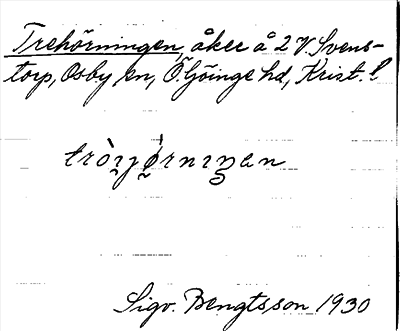 Trehörningen, åker å 2 V. Svens-
torp, Osby sn, Ö. Göinge hd, Krist. l
Sigv. Bengtsson 1930